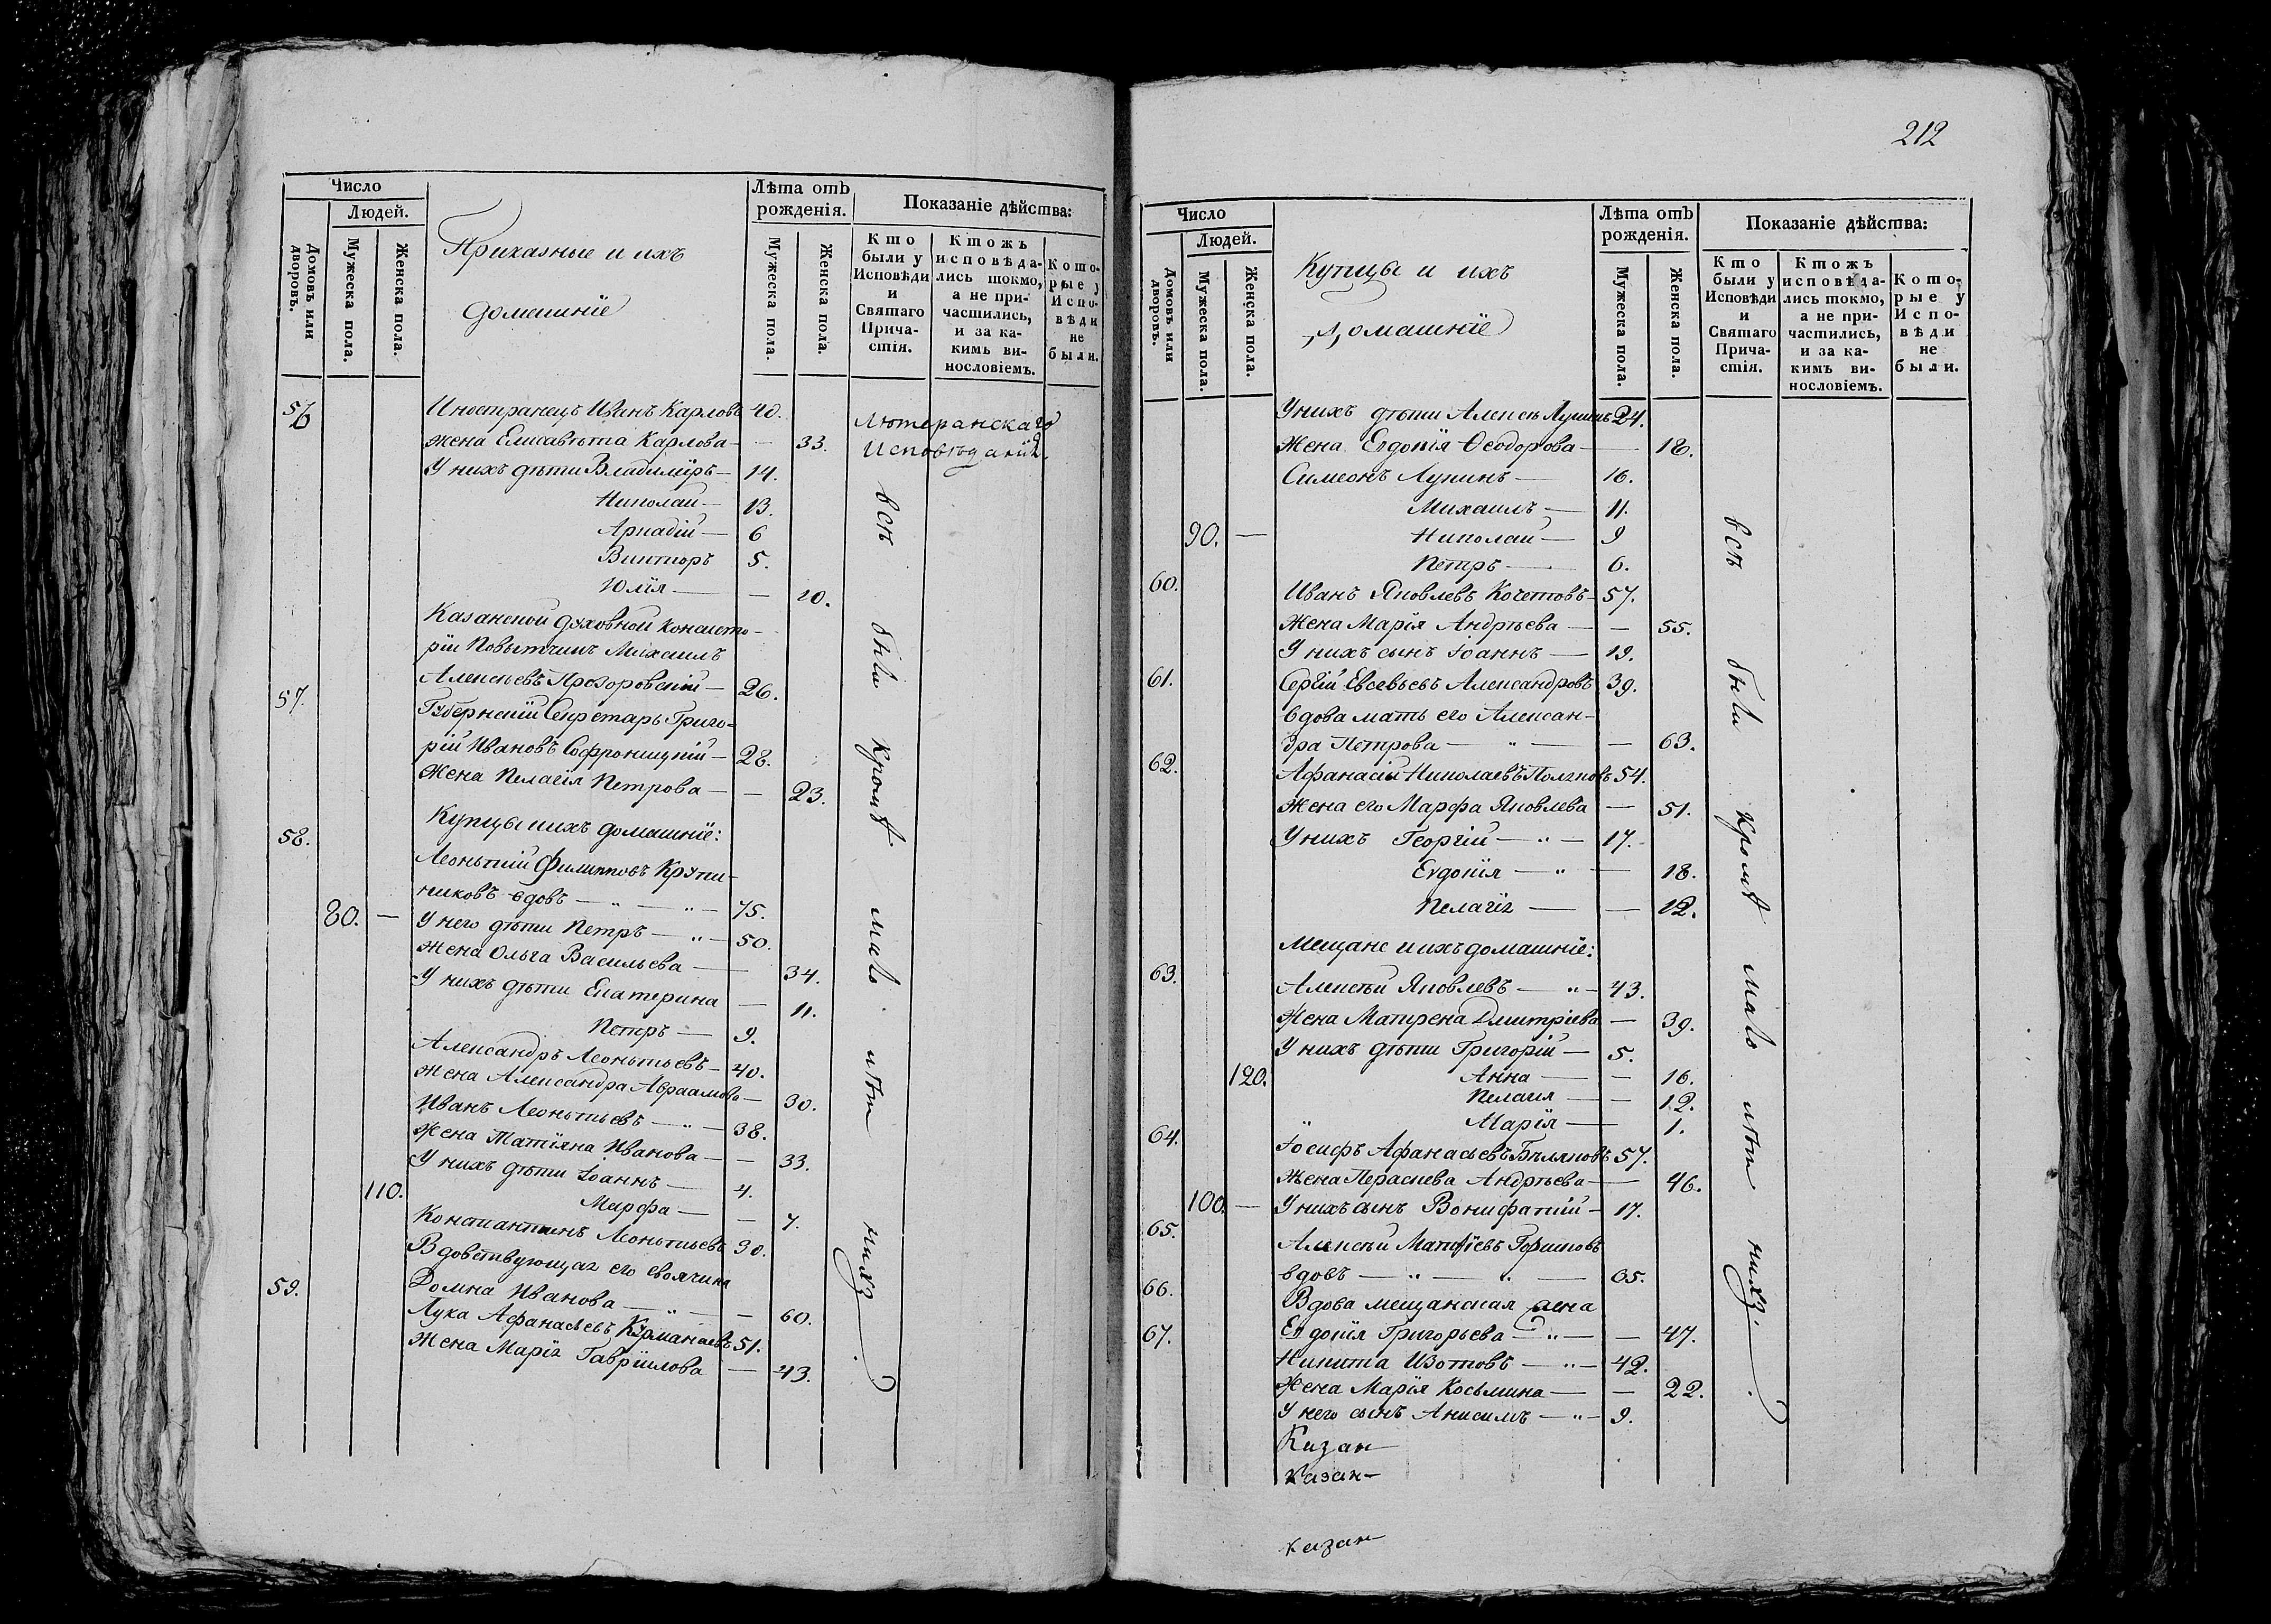 Число
Людей.
Домовъ или дворовъ.
Мужеска пола.
Женска пола.
Приказные и ихъ
домашнїе
Лѣта отъ рожденія.
Мужеска пола.
Женска пола.
Показаніе дѣйства:
Кто были у Исповѣди и Святаго Причастія.
Ктожъ исповѣдались токмо, а не причастились, и за какимъ винословіемъ.
Которые у Исповѣди не были.
56 Иностранецъ Иванъ Карловъ 40. Лютеранскаго
жена Елисавѣта Карлова — — 33. Исповѣданія.
У нихъ дѣти Владимїръ — 14.
Николай — 13.
Аркадій — 6
Викторъ 5.
Юлїя — — 10.
Казанской духовной консисто-
ріи Повытчикъ Михаилъ
Алексѣевъ Прозоровскій — 26.
57. Губернскій Секретарь Григо-
рій Ивановъ Софроницкій — 28.
Жена Пелагія Петрова — — 23.
Купцы и ихъ домашніе:
58. Леонтій Филипповъ Крупе-
никовъ вдовъ — „ — „ — 75.
80. — У него дѣти Петръ — „ — 50.
Жена Ольга Васильева — — 34.
У нихъ дѣти Екатерина — 11.
Петръ — 9.
Александръ Леонтьевъ — 40.
Жена Александра Авраамова — 30.
Иванъ Леонтьевъ — „ — 38.
Жена Татїяна Иванова — — 33.
У нихъ дѣти Іоаннъ — 4.
110. Марфа — — 7.
Константинъ Леонтьевъ 30.
Вдовствующая его своячина
Домна Иванова — „ — — 60.
59. Лука Афанасьевъ Курманаевъ 51.
Жена Марія Гавріилова — 43.
всѣ были кромѣ мало лѣтнихъ.
212
Число
Людей.
Домовъ или дворовъ.
Мужеска пола.
Женска пола.
Купцы и ихъ
Домашнїе
Лѣта отъ рожденія.
Мужеска пола.
Женска пола.
Показаніе дѣйства:
Кто были у Исповѣди и Святаго Причастія.
Ктожъ исповѣдались токмо, а не причастились, и за какимъ винословіемъ.
Которые у Исповѣди не были.
У нихъ дѣти Алексѣй Лупинъ 24.
Жена Евдокія Ѳеодорова — — 18.
Симеонъ Лупинъ — 16.
Михаилъ — 11.
90. — Николай — 9
Петръ — 6.
60. Иванъ Яковлевъ Кочетовъ — 57.
Жена Марія Андрѣева — — 55.
У нихъ сынъ Іоаннъ — 19.
61. Сергій Евсевьевъ Александровъ 39.
вдова мать его Алексан-
дра Петрова — „ — — 63.
62. Афанасій Николаевъ 54.
Жена его Марфа Яковлева — 51.
У нихъ Георгій — „ — 17.
Евдокія — „ — 18.
Пелагія — — 12.
Мещане и ихъ домашніе:
63. Алексѣй Яковлевъ — „ — 43.
Жена Матрена Дмитріева — 39.
У нихъ дѣти Григорій — 5.
120. Анна — — 16.
Пелагія — — 12.
Марія — 1.
64. Іосифъ Афанасьевъ Бѣляковъ 57.
Жена Параскева Андрѣева — 46.
100. — У нихъ сынъ Вонифатій — 17.
65. Алексѣй Матѳіевъ Горшковъ
вдовъ — „ — „ — 65.
66. Вдова мещанская жена
Евдокія Григорьева — „ — — 47.
67. Никита Изотовъ — „ — 42.
Жена Марія Косьмина — — 22.
У него сынъ Анисимъ — „ — 9.
Казан
Казан—
Казан
всѣ были кромѣ мало лѣтнихъ.